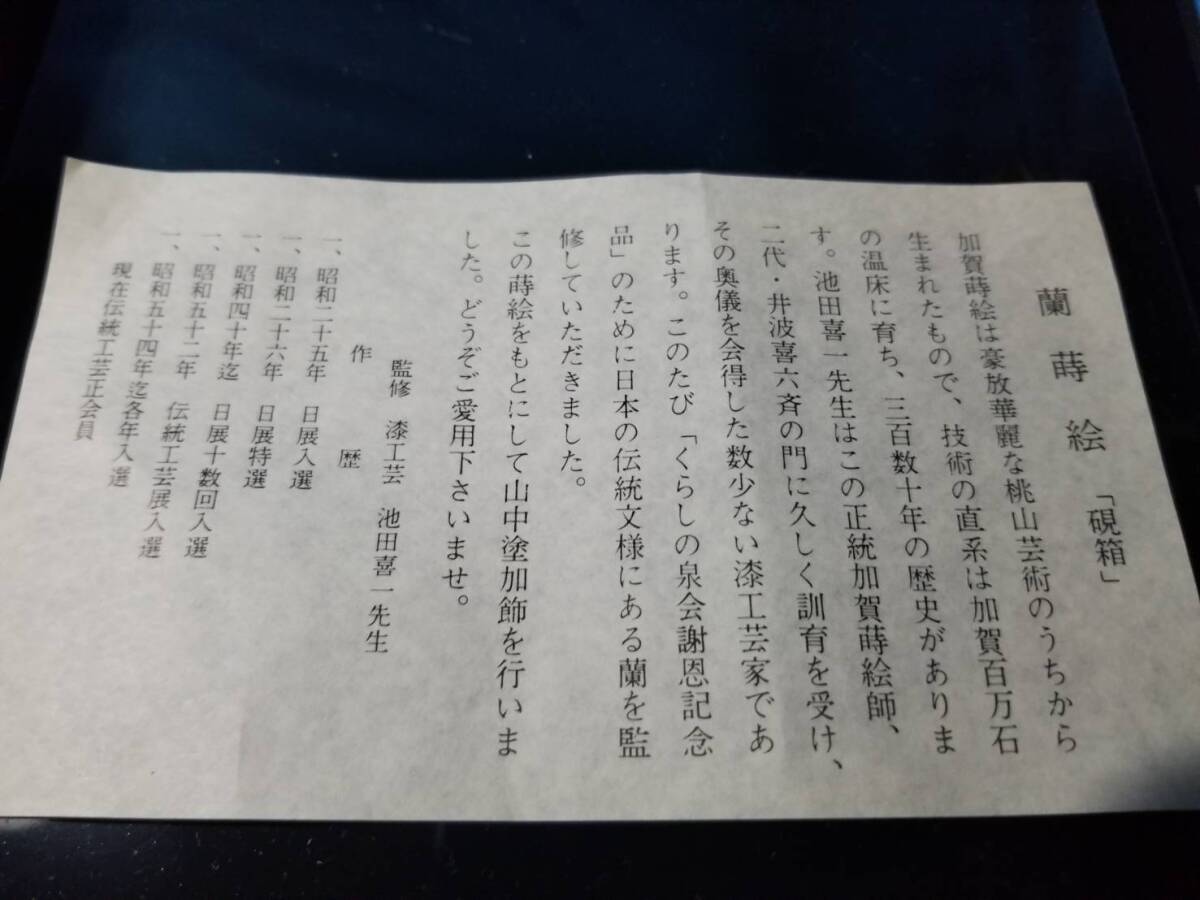 蘭蒔絵「硯箱」
加賀蒔絵は豪放華麗な桃山芸術のうちから
生まれたもので、技術の直系は加賀百万石
の温床に育ち、三百数十年の歴史がありま
す。池田喜一先生はこの正統加賀蒔絵師、
二代・井波喜六斉の門に久しく訓育を受け、
その奥儀を会得した数少ない漆工芸家であ
ります。このたび「くらしの泉会謝恩記念
品」のために日本の伝統文様にある蘭を監
修していただきました。
この蒔絵をもとにして山中塗加飾を行いま
した。どうぞご愛用下さいませ。
監修 漆工芸 池田喜一先生
作歴
一、昭和二十五年 日展入選
一、昭和二十六年 日展特選
一、昭和四十年迄 日展十数回入選
一、昭和五十二年 伝統工芸展入選
一、昭和五十四年迄各年入選
現在伝統工芸正会員